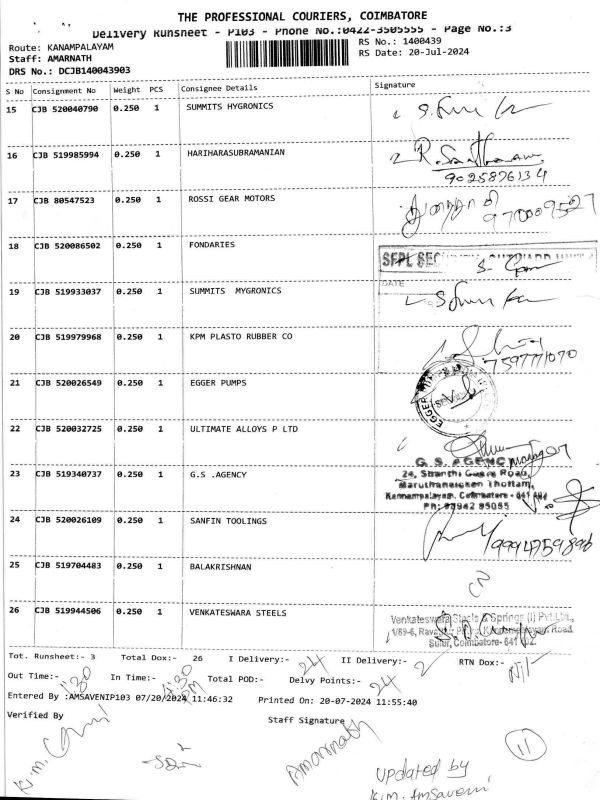 THE PROFESSIONAL COURIERS, COIMBATORE
Delivery Runsheet - P103 - Phone No.:0422-3505555 - Page No.:3
Route: KANAMPALAYAM RS No.: 1400439
Staff: AMARNATH RS Date: 20-Jul-2024
DRS No.: DCJB140043903
S No Consignment No Weight PCS Consignee Details Signature
15 CJB 520040790 0.250 1 SUMMITS HYGRONICS
16 CJB 519985994 0.250 1 HARIHARASUBRAMANIAN
9025876134
17 CJB 80547523 0.250 1 ROSSI GEAR MOTORS
18 CJB 520086502 0.250 1 FONDARIES
SFPL
DATE
19 CJB 519933037 0.250 1 SUMMITS MYGRONICS
20 CJB 519979968 0.250 1 KPM PLASTO RUBBER CO
21 CJB 520026549 0.250 1 EGGER PUMPS
EGGER
22 CJB 520032725 0.250 1 ULTIMATE ALLOYS P LTD
Manager
23 CJB 519340737 0.250 1 G.S .AGENCY
G. S. AGENCY
24, Shanthi Gears Road,
Maruthanaicken Thottam,
Kannampalayam, Coimbatore - 641
24 CJB 520026109 0.250 1 SANFIN TOOLINGS
25 CJB 519704483 0.250 1 BALAKRISHNAN
26 CJB 519944506 0.250 1 VENKATESWARA STEELS
Venkateswara Steels & Springs (I) Pvt.Ltd.,
Sulur, Coimbatore- 641
Tot. Runsheet:- 3 Total Dox:- 26 I Delivery:- 24 II Delivery:- 2 RTN Dox:- Nil
Out Time:- In Time:- Total POD:- Delvy Points:- 24
Entered By :AMSAVENIP103 07/20/2024 11:46:32 Printed On: 20-07-2024 11:55:40
Verified By Staff Signature
Amarnath
11
Updated by
K.M. Amsaveni